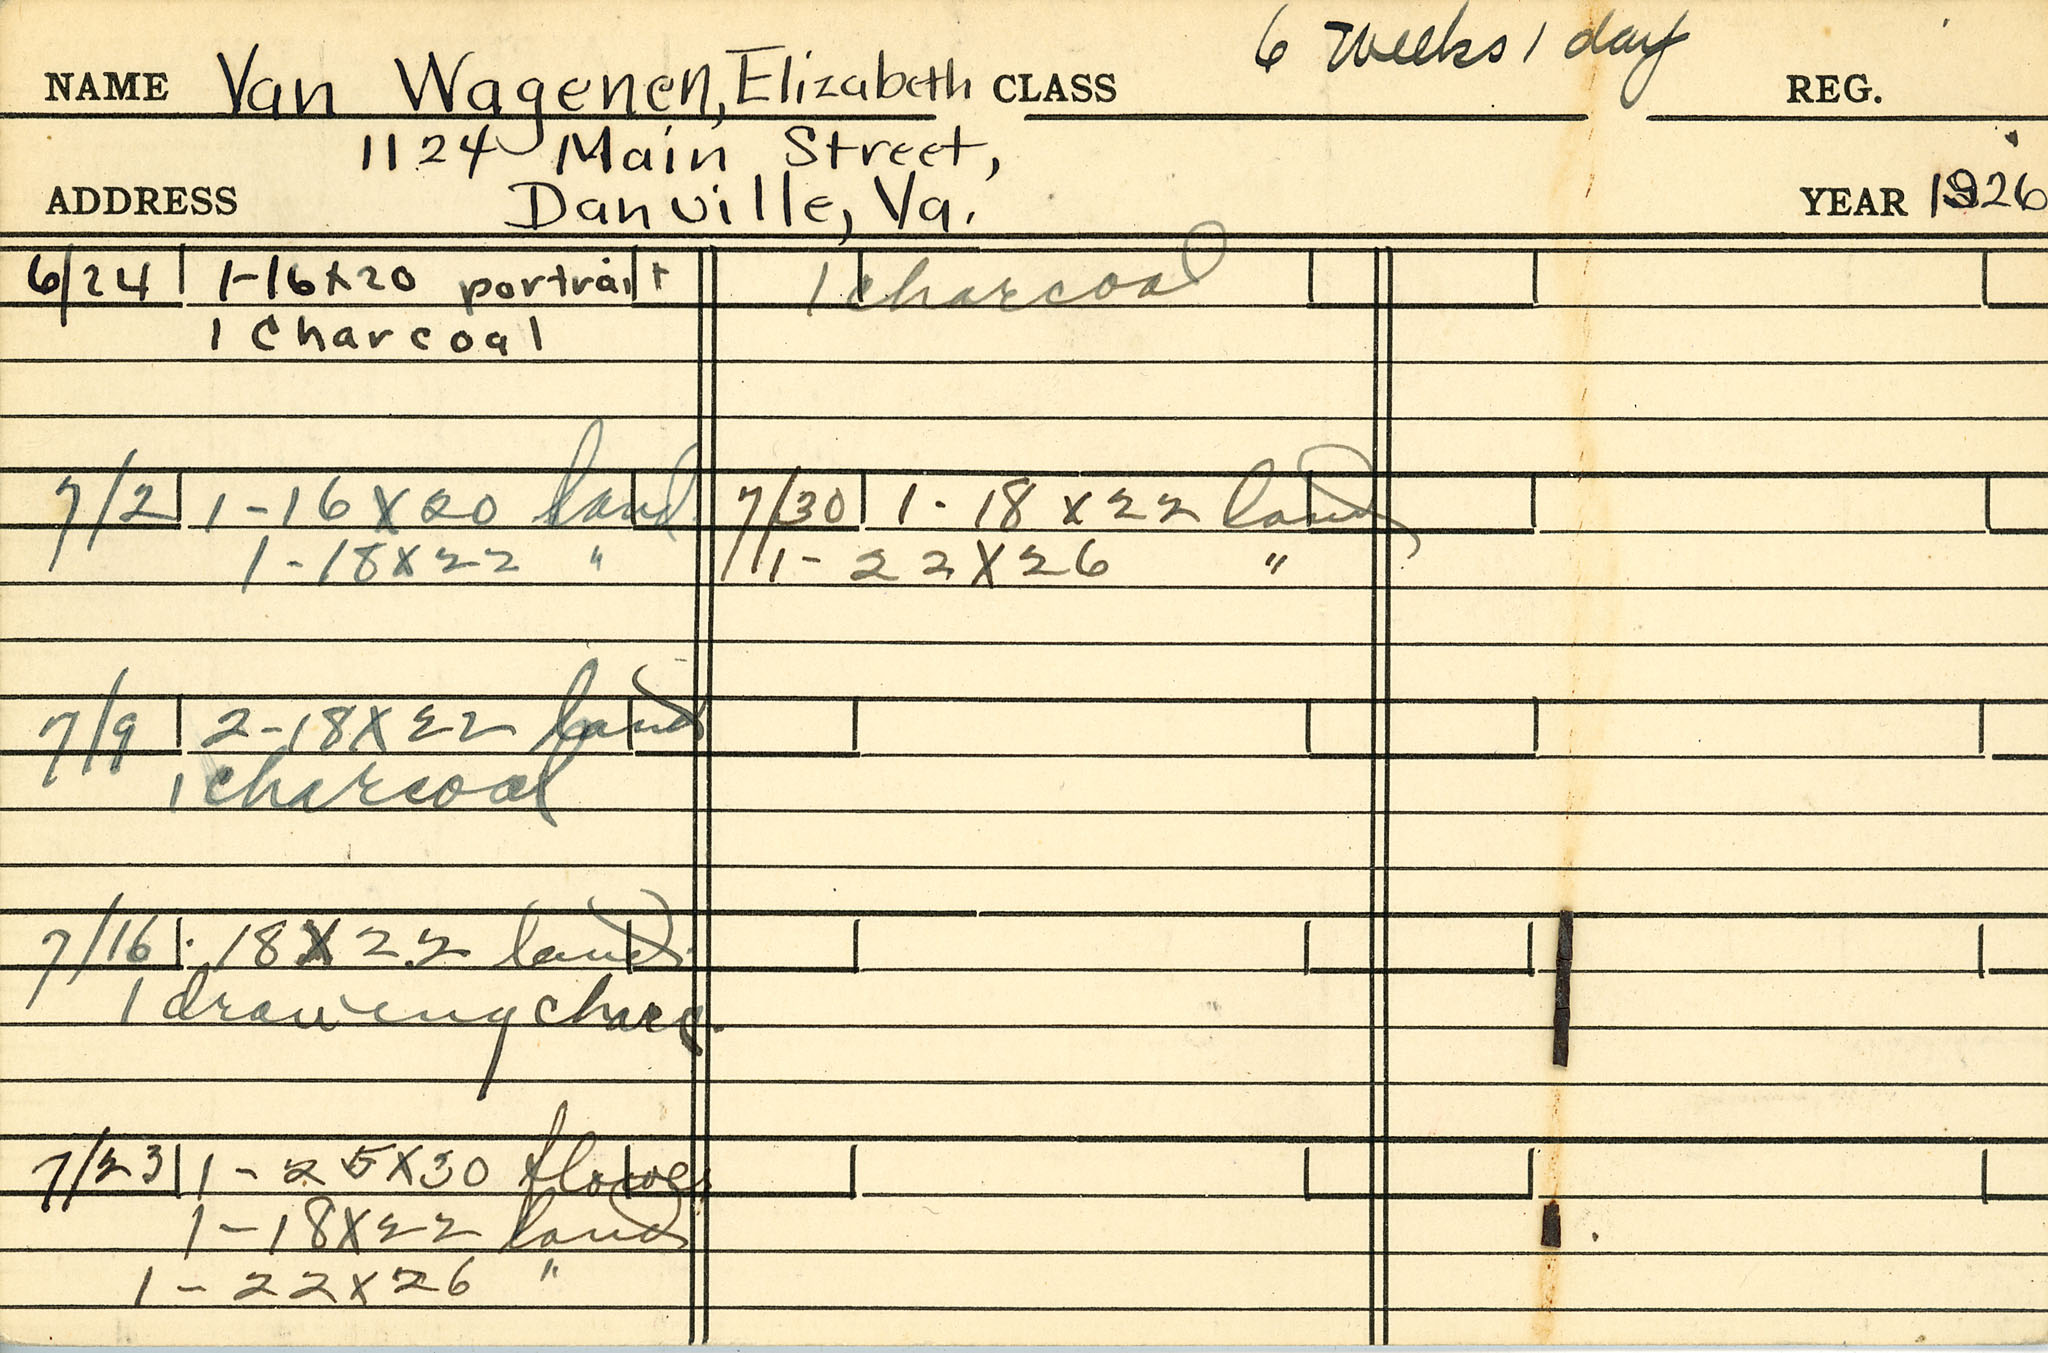 6 Weeks 1 day
NAME Van Wagenen, Elizabeth CLASS REG.
1124 Main Street,
ADDRESS Danville, Va. YEAR 1926
6/24 1-16x20 portrait
1 Charcoal
7/2 1-16X20 land
1-18X22 "
7/9 2-18X22 land
1 charcoal
7/16 18X22 land
1 drawing charc.
7/23 1-25X30 flower
1-18X22 land
1-22x26 "
1 charcoal
7/30 1-18x22 land
1-22X26 "